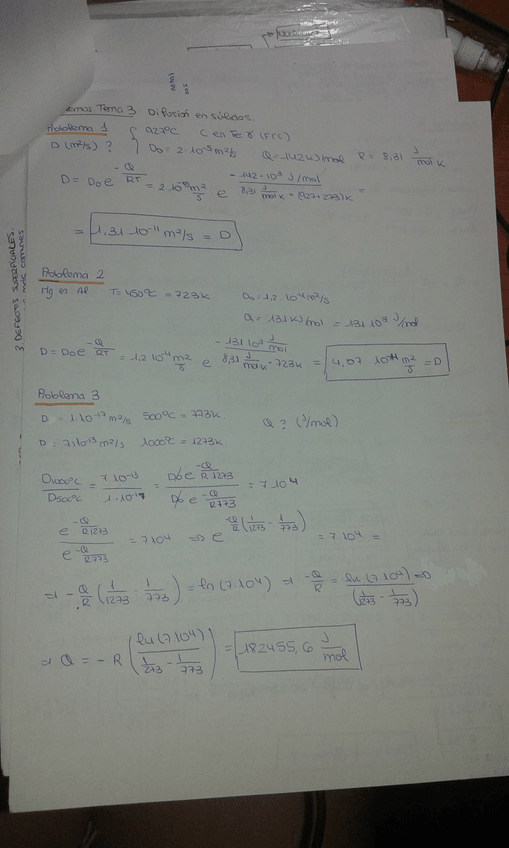 Tema 3 Difusión en sólidos.
Problema 1 { 927ºC C en Fe γ (FCC)
D (m²/s) ? D₀ = 2·10⁻⁵ m²/s Q = 142 kJ/mol R = 8,31 J/mol K
D = D₀ e^(-Q/RT) = 2·10⁻⁵ m²/s e^(-142·10³ J/mol / 8,31 J/mol K · (927+273) K) =
= 1,31 10⁻¹¹ m²/s = D
Problema 2
Mg en Al T = 450ºC = 723 K D₀ = 1,2 10⁻⁴ m²/s
Q = 131 kJ/mol = 131 10³ J/mol
D = D₀ e^(-Q/RT) = 1,2 10⁻⁴ m²/s e^(-131 10³ J/mol / 8,31 J/mol K · 723K) = 4,07 10⁻¹⁴ m²/s = D
Problema 3
D = 1·10⁻¹⁷ m²/s 500ºC = 773 K. Q ? (J/mol)
D = 7·10⁻¹³ m²/s 1000ºC = 1273 K.
D1000ºC / D500ºC = 7 10⁻¹³ / 1·10⁻¹⁷ = D₀ e^(-Q/R 1273) / D₀ e^(-Q/R 773) = 7 10⁴
e^(-Q/R 1273) / e^(-Q/R 773) = 7 10⁴ ⇒ e^(-Q/R (1/1273 - 1/773)) = 7 10⁴ =
⇒ -Q/R (1/1273 - 1/773) = ln (7·10⁴) ⇒ -Q/R = ln (7 10⁴) / (1/1273 - 1/773) ⇒
⇒ Q = - R (ln (7 10⁴) / 1/1273 - 1/773) = 182455,6 J/mol
3. DEFECTOS SUPERFICIALES.
más comunes